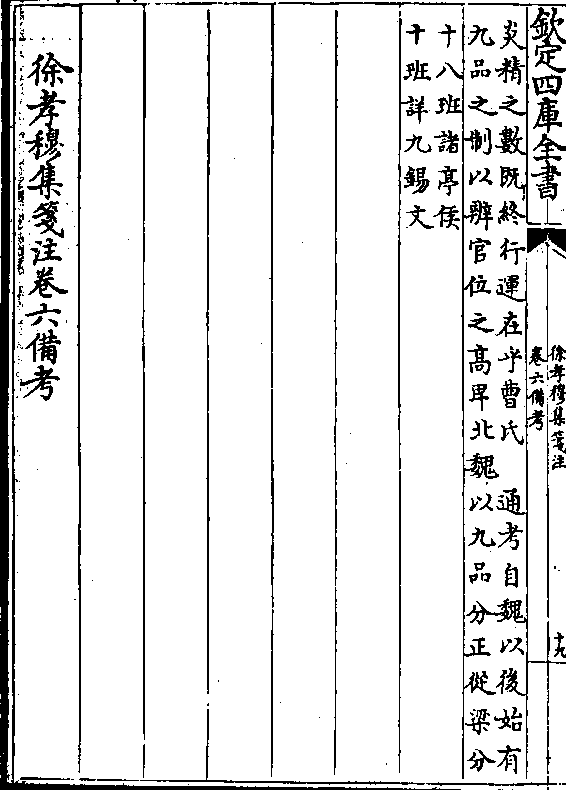 欽定四庫全書
徐孝穆集箋注
卷六備考
十九
炎精之數既終行運在乎曹氏　通考自魏以後始有
九品之制以辨官位之高卑北魏以九品分正從梁分
十八班諸亭侯
十班詳九錫文
徐孝穆集箋注卷六備考